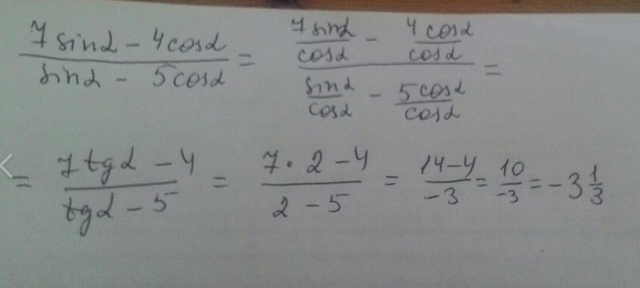 (7sinα - 4cosα)/(sinα - 5cosα) = (7sinα/cosα - 4cosα/cosα)/(sinα/cosα - 5cosα/cosα) =
= (7tgα - 4)/(tgα - 5) = (7·2-4)/(2-5) = (14-4)/(-3) = 10/(-3) = -3 1/3